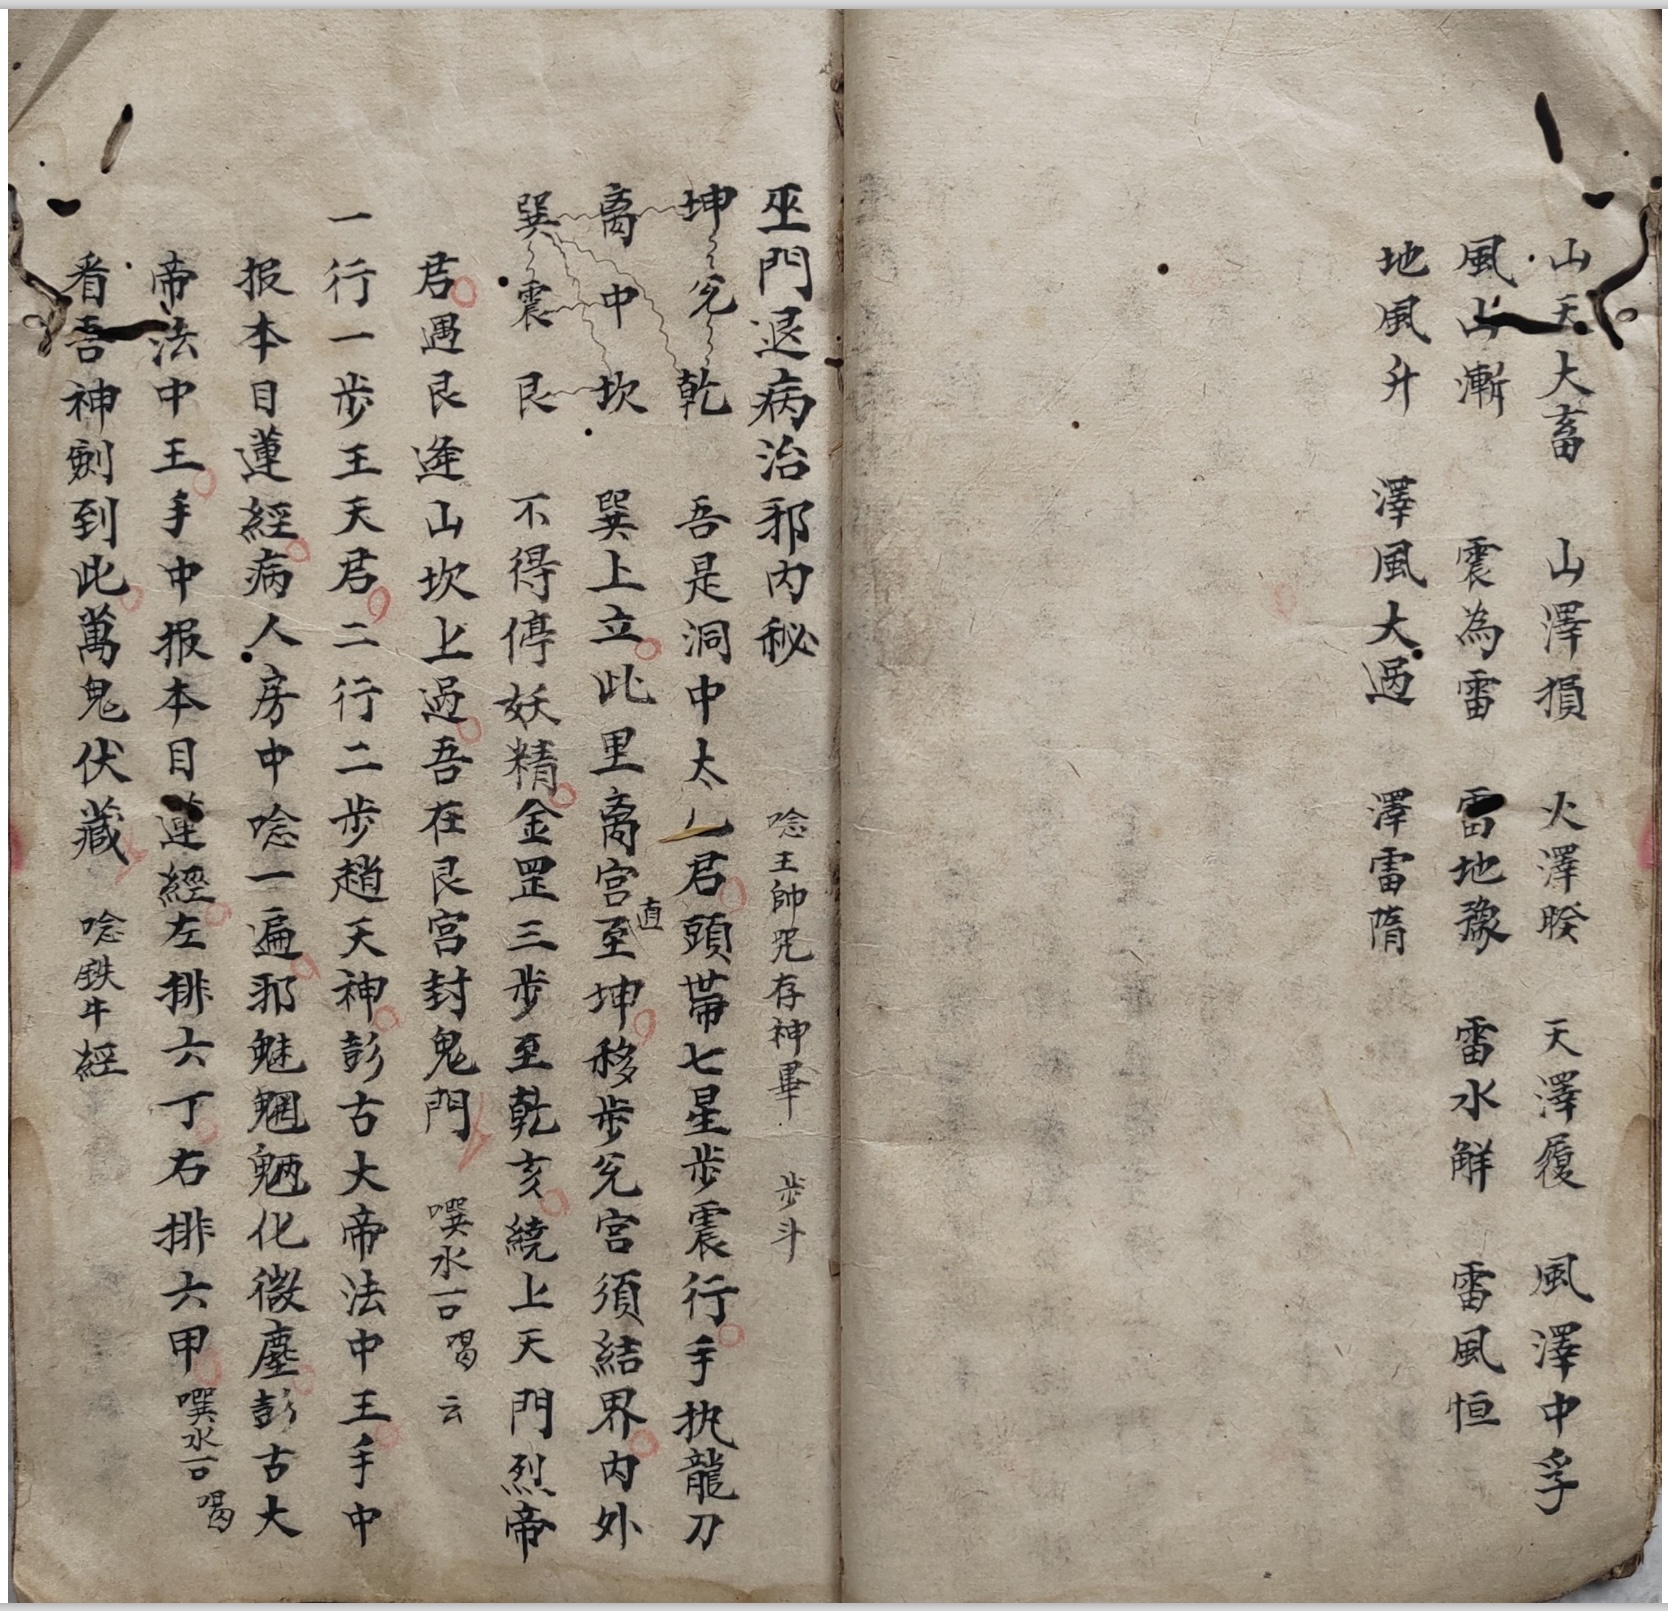 山天大畜　山澤損　火澤睽　天澤履　風澤中孚
風山漸　震為雷　雷地豫　雷水觧　雷風恒
地風升　澤風大過　澤雷隋
巫門退病治邪内秘　唸王帥咒存神畢　步斗
坤　兊　乾　吾是洞中太乙君頭带七星步震行手执龍刀
离　中　坎　巽上立此里离宫至直坤移步兊宫須結界内外
巽　震　艮　不得停妖精金罡三步至乾亥繞上天門烈帝
君遇艮逄山坎上過吾在艮宫封鬼門　噀水一口喝云
一行一步王天君二行二步趙天神彭古大帝法中王手中
报本目蓮經病人房中唸一遍邪魅魍魎化微塵彭古大
帝法中王手中报本目蓮經左排六丁右排六甲　噀水一口喝
看吾神劍到此萬鬼伏藏　唸鉄牛經